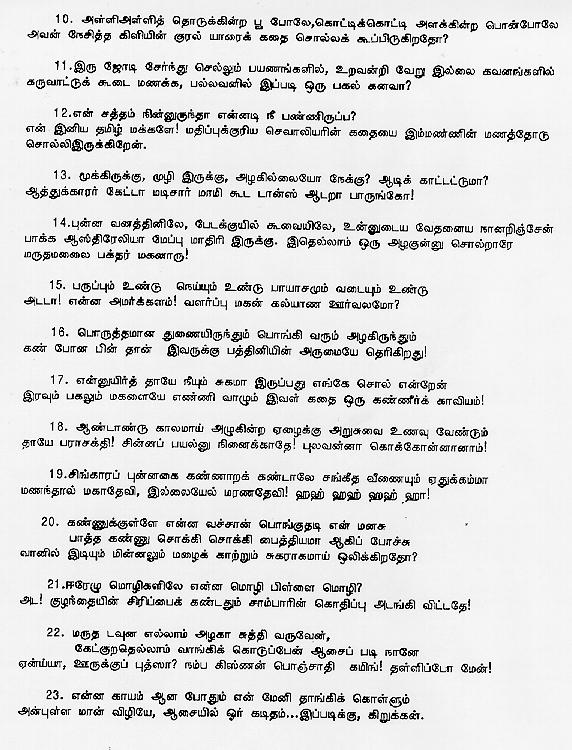 10. அள்ளிஅள்ளித் தொடுக்கின்ற பூ போலே,கொட்டிக்கொட்டி அளக்கின்ற பொன்போலே
அவன் நேசித்த கிளியின் குரல் யாரைக் கதை சொல்லக் கூப்பிடுகிறதோ?
11.இரு ஜோடி சேர்ந்து செல்லும் பயணங்களில், உறவன்றி வேறு இல்லை கவனங்களில்
கருவாட்டுக் கூடை மணக்க, பல்லவனில் இப்படி ஒரு பகல் கனவா?
12.என் சத்தம் நின்னுகுந்தா என்னடி நீ பண்ணிருப்ப?
என் இனிய தமிழ் மக்களே! மதிப்புக்குரிய செவாலியரின் கதையை இம்மண்ணின் மணத்தோடு
சொல்லிஇருக்கிறேன்.
13. மூக்கிருக்கு, முழி இருக்கு, அழகில்லையோ நேக்கு? ஆடிக் காட்டட்டுமா?
ஆத்துக்காரர் கேட்டா மடிசார் மாமி கூட டான்ஸ் ஆடறா பாருங்கோ!
14.புன்ன வனத்தினிலே, பேடக்குயில் கூவையிலே, உன்னுடைய வேதனைய நானறிஞ்சேன்
பாக்க ஆஸ்திரேலியா மேப்பு மாதிரி இருக்கு. இதெல்லாம் ஒரு அழகுன்னு சொல்றாரே
மருதமலை பக்தர் மகனாரு!
15. பருப்பும் உண்டு நெய்யும் உண்டு பாயாசமும் வடையும் உண்டு
அடடா! என்ன அமர்க்களம்! வளர்ப்பு மகன் கல்யாண ஊர்வலமோ?
16. பொருத்தமான துணையிருந்தும் பொங்கி வரும் அழகிருந்தும்
கண் போன பின் தான் இவருக்கு பத்தினியின் அருமையே தெரிகிறது!
17. என்னுயிர்த் தாயே நீயும் சுகமா இருப்பது எங்கே சொல் என்றேன்
இரவும் பகலும் மகளையே எண்ணி வாழும் இவள் கதை ஒரு கண்ணீர்க் காவியம்!
18. ஆண்டாண்டு காலமாய் அழுகின்ற ஏழைக்கு அறுசுவை உணவு வேண்டும்
தாயே பராசக்தி! சின்னப் பயல்னு நினைக்காதே! புலவன்னா கொக்கோன்னானாம்!
19.சிங்காரப் புன்னகை கண்ணாறக் கண்டாலே சங்கீத வீணையும் ஏதுக்கம்மா
மணந்தால் மகாதேவி, இல்லையேல் மரணதேவி! ஹஹ் ஹஹ் ஹஹ் ஹா!
20. கண்ணுக்குள்ளே என்ன வச்சான் பொங்குதடி என் மனசு
பாத்த கண்ணு சொக்கி சொக்கி பைத்தியமா ஆகிப் போச்சு
வானில் இடியும் மின்னலும் மழைக் காற்றும் சுகராகமாய் ஒலிக்கிறதோ?
21.ஈரேழு மொழிகளிலே என்ன மொழி பிள்ளை மொழி?
அட! குழந்தையின் சிரிப்பைக் கண்டதும் சாம்பாரின் கொதிப்பு அடங்கி விட்டதே!
22. மருத டவுன எல்லாம் அழகா சுத்தி வருவேன்,
கேட்குறதெல்லாம் வாங்கிக் கொடுப்பேன் ஆசைப் படி நானே
ஏன்ய்யா, ஊருக்குப் புத்ஸா? நம்ப கிஸ்ணன் பொஞ்சாதி கமிங்! தள்ளிப்போ மேன்!
23. என்ன காயம் ஆன போதும் என் மேனி தாங்கிக் கொள்ளும்
அன்புள்ள மான் விழியே, ஆசையில் ஓர் கடிதம்...இப்படிக்கு, கிறுக்கன்.